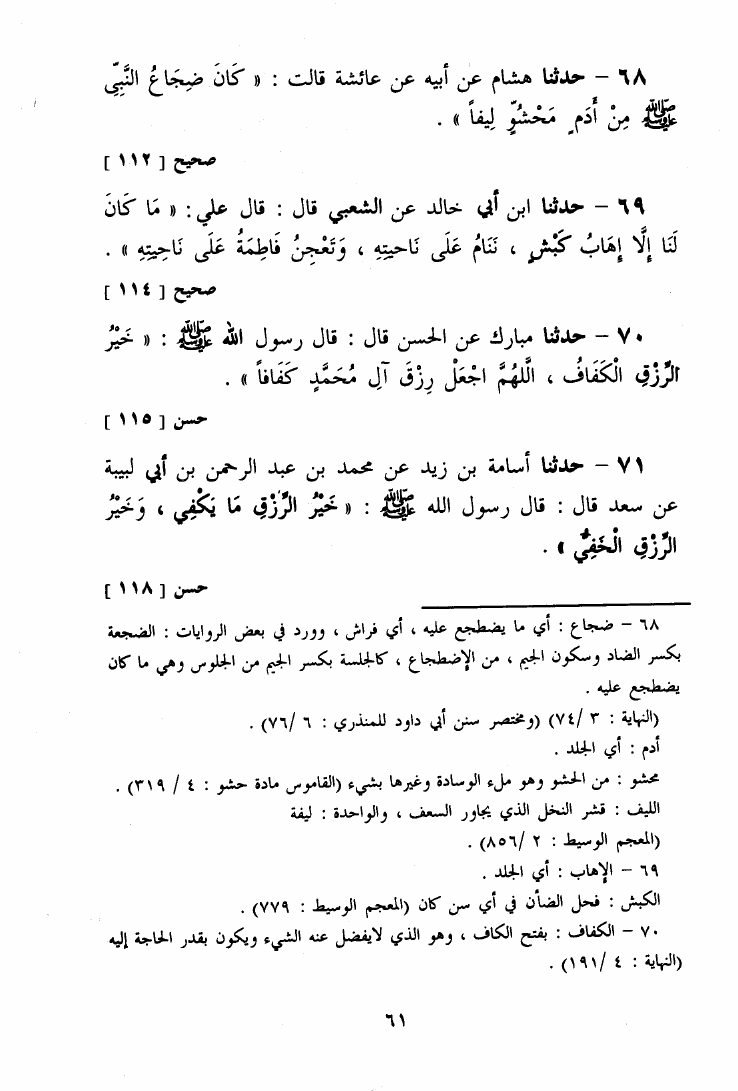 ٦٨ – حدثنا هشام عن أبيه عن عائشة قالت : « كَانَ ضِجَاعُ النَّبِيِّ
ﷺ مِنْ أَدَمٍ مَحْشُوٍّ لِيفاً » .
صحيح [ ١١٢ ]
٦٩ – حدثنا ابن أبي خالد عن الشعبي قال : قال علي : « مَا كَانَ
لَنَا إِلَّا إِهَابُ كَبْشٍ ، نَنَامُ عَلَى نَاحيتِهِ ، وَتَعْجِنُ فَاطِمَةُ عَلَى نَاحِيتِهِ » .
صحيح [ ١١٤ ]
٧٠ – حدثنا مبارك عن الحسن قال : قال رسول الله ﷺ : « خَيْرُ
الرِّزْقِ الْكَفَافُ ، اللَّهُمَّ اجْعَلْ رِزْقَ آلِ مُحَمَّدٍ كَفَافاً » .
حسن [ ١١٥ ]
٧١ – حدثنا أسامة بن زيد عن محمد بن عبد الرحمن بن أبي لبيبة
عن سعد قال : قال رسول الله ﷺ : « خَيْرُ الرِّزْقِ مَا يَكْفِي ، وَخَيْرُ
الرِّزْقِ الْخَفِيُّ » .
حسن [ ١١٨ ]
٦٨ – ضجاع : أي ما يضطجع عليه ، أي فراش ، وورد في بعض الروايات : الضجعة
بكسر الضاد وسكون الجيم ، من الإضطجاع ، كالجلسة بكسر الجيم من الجلوس وهي ما كان
يضطجع عليه .
(النهاية : ٣ /٧٤) (ومختصر سنن أبي داود للمنذري : ٦ /٧٦) .
أدم : أي الجلد .
محشو : من الحشو وهو ملء الوسادة وغيرها بشيء (القاموس مادة حشو : ٤ / ٣١٩) .
الليف : قشر النخل الذي يجاور السعف ، والواحدة : ليفة
(المعجم الوسيط : ٢ /٨٥٦) .
٦٩ – الإهاب : أي الجلد .
الكبش : فحل الضأن في أي سن كان (المعجم الوسيط : ٧٧٩) .
٧٠ – الكفاف : بفتح الكاف ، وهو الذي لايفضل عنه الشيء ويكون بقدر الحاجة إليه
(النهاية : ٤ /١٩١) .
٦١